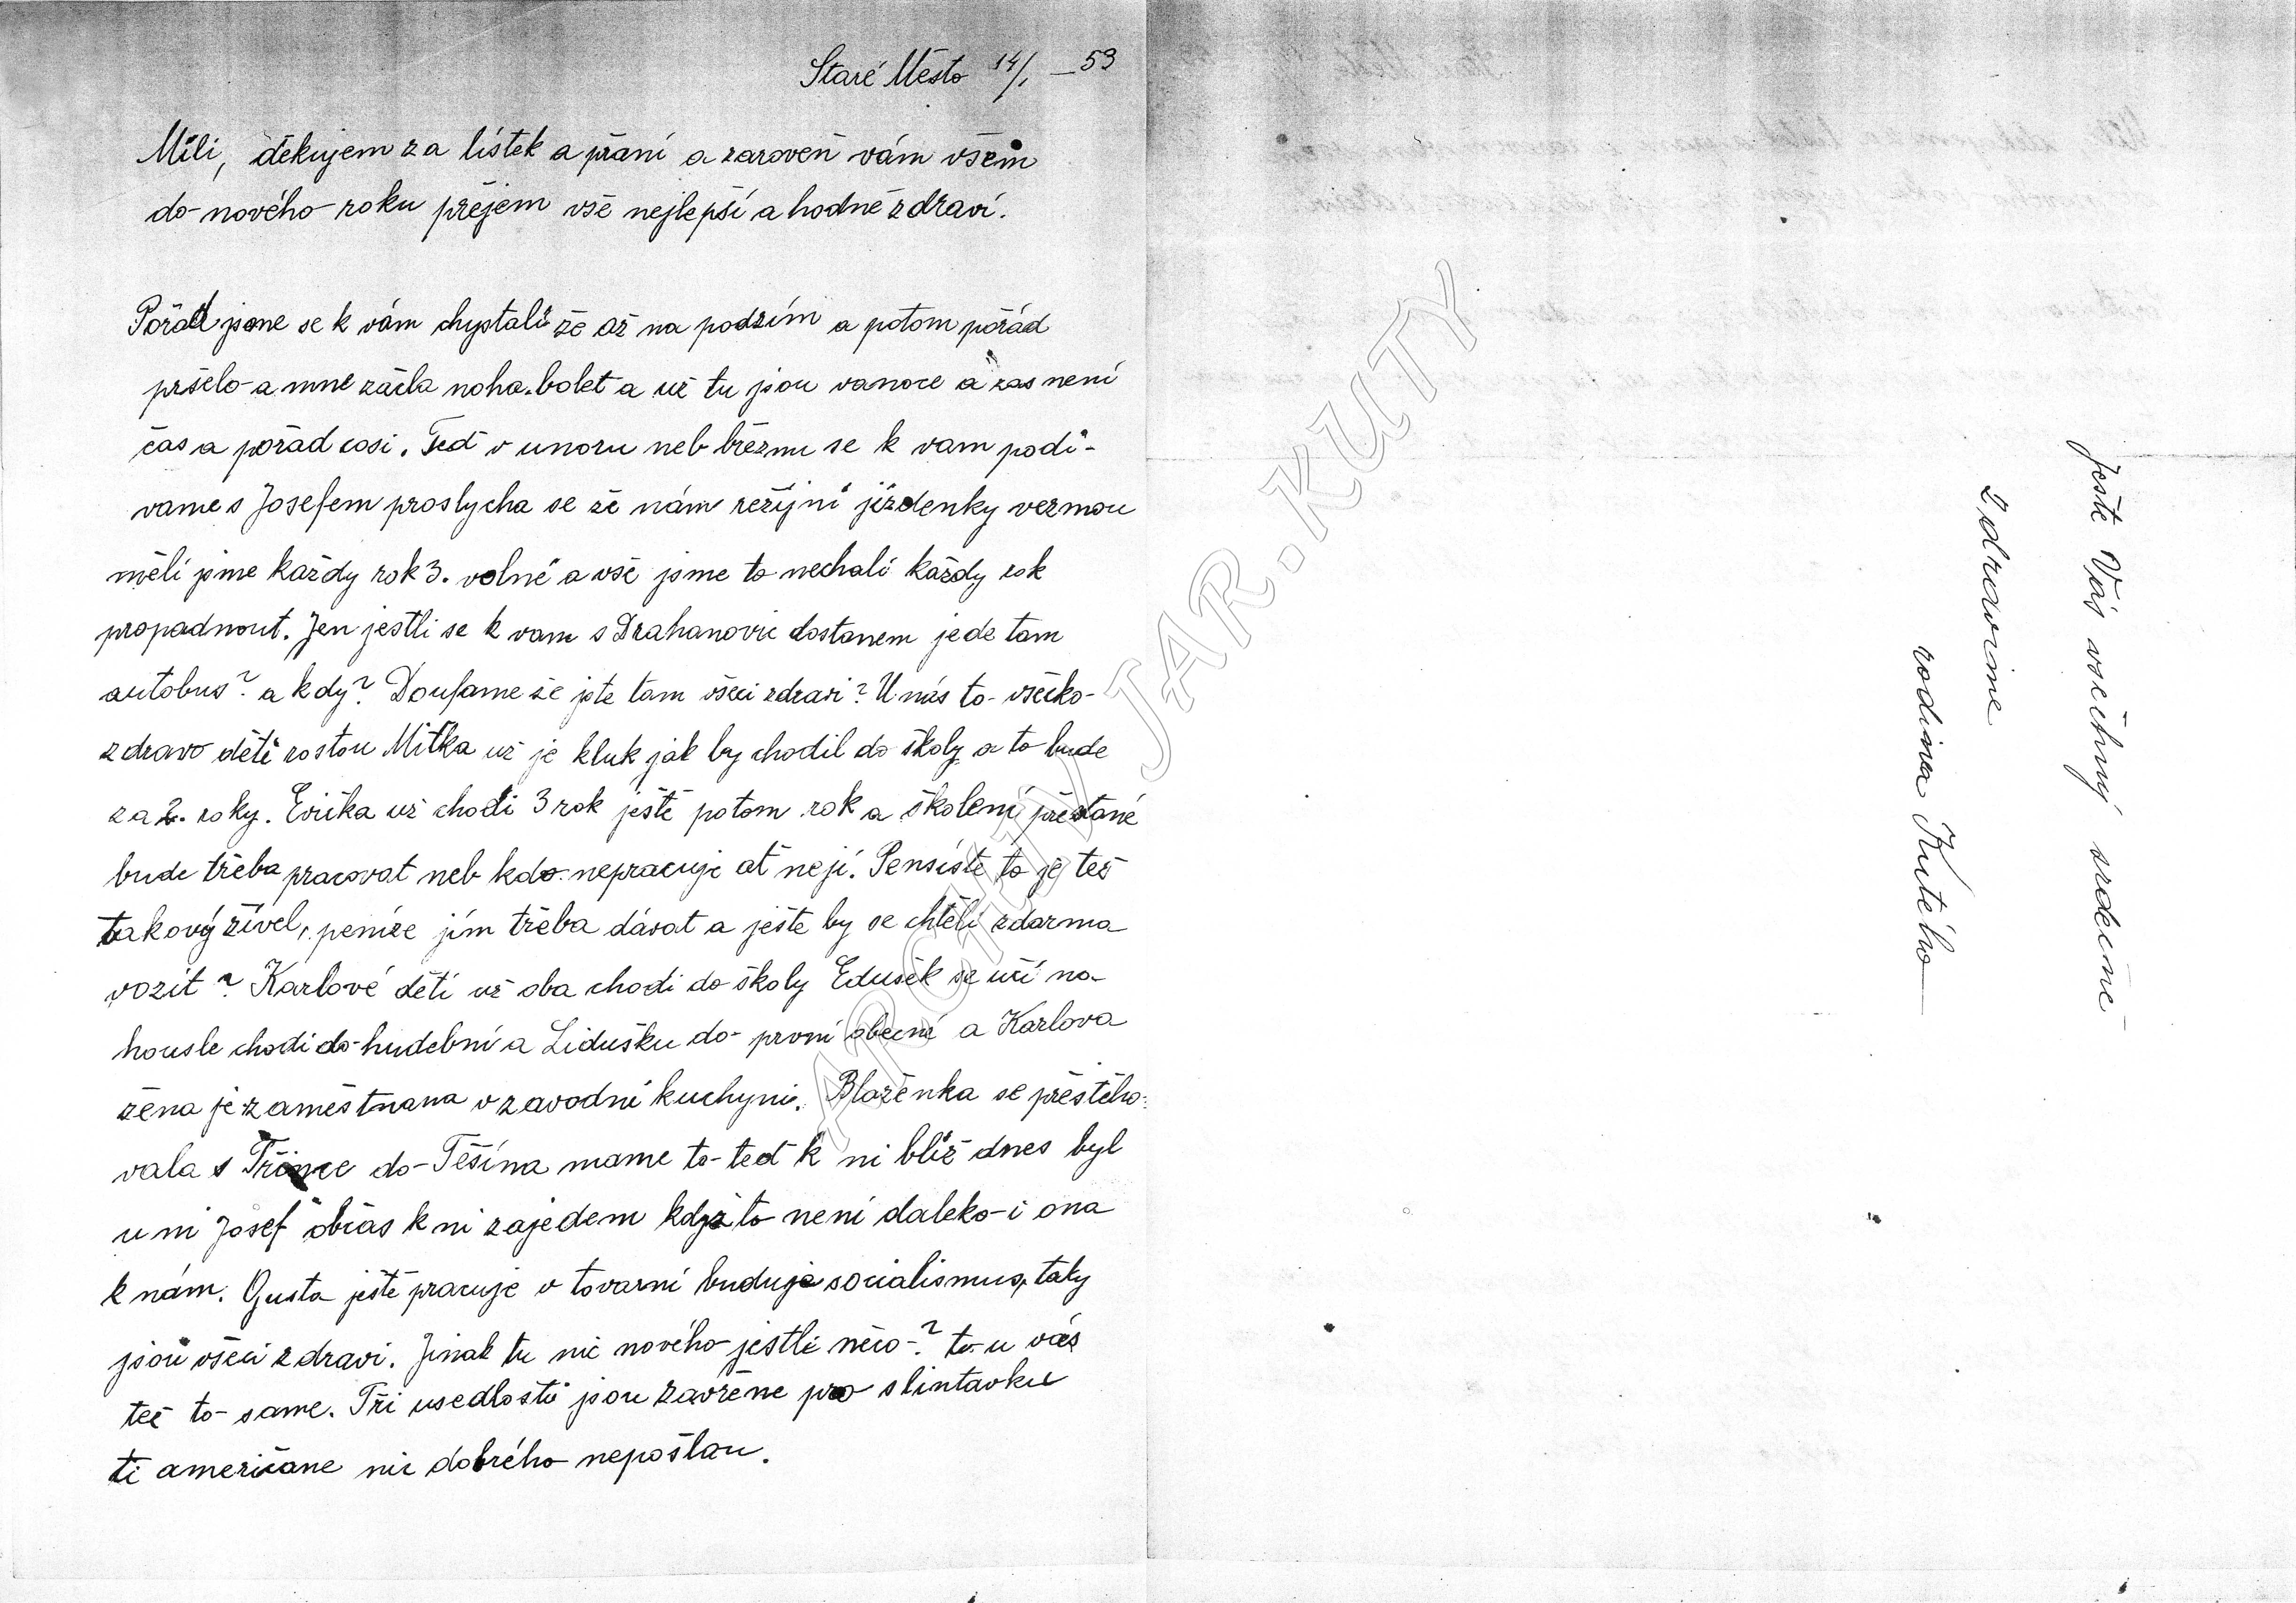 Staré Město 14/1 – 53
Milí, děkujem za lístek a přání a zaroveň vám všem
do nového roku přejem vše nejlepší a hodně zdraví.
Pořád jsme se k vám chystali že až na podzim a potom pořád
pršelo a mne začla noha bolet a už tu jsou vanoce a zas není
čas a pořad cosi. Teď v unoru neb březnu se k vam podi-
vame s Josefem proslycha se že nám režijní jízdenky vezmou
měli jsme každy rok 3. volné a vše jsme to nechali každy rok
propadnout. Jen jestli se k vam s Drahanovic dostanem jede tam
autobus? a kdy? Doufame že jste tam všeci zdravi? U nás to všecko
zdravo děti rostou Mitka už je kluk jak by chodil do školy a to bude
za 2. roky. Evička už chodi 3 rok ještě potom rok a školení přestané
bude třeba pracovat neb kdo nepracuje ať nejí. Pensisté to je też
takový živel, peníze jím třeba dávat a ješte by se chtěli zdarma
vozit? Karlové děti už oba chodi do školy Edušek se učí na
housle chodi do hudební a Lidušku do první obecné a Karlova
žena je zaměstnana v zavodní kuchyni. Blaženka se přestěho-
vala s Třince do Těšína mame to teď k ni blíž dnes byl
u ni Josef občas k ni zajedem když to neni daleko i ona
k nám. Gusta ještě pracuje v tovarní buduje socialismus, taky
jsou všeci zdravi. Jinak tu nic nového jestli něco? to u vás
tež to same. Tři usedlosti jsou zavřene pro slintavku
ti američane nic dobrého nepošlou.
Ješte Vás všechný srdečně
Zdravime
rodina Kutého
ARCHIV JAR. KUTÝ